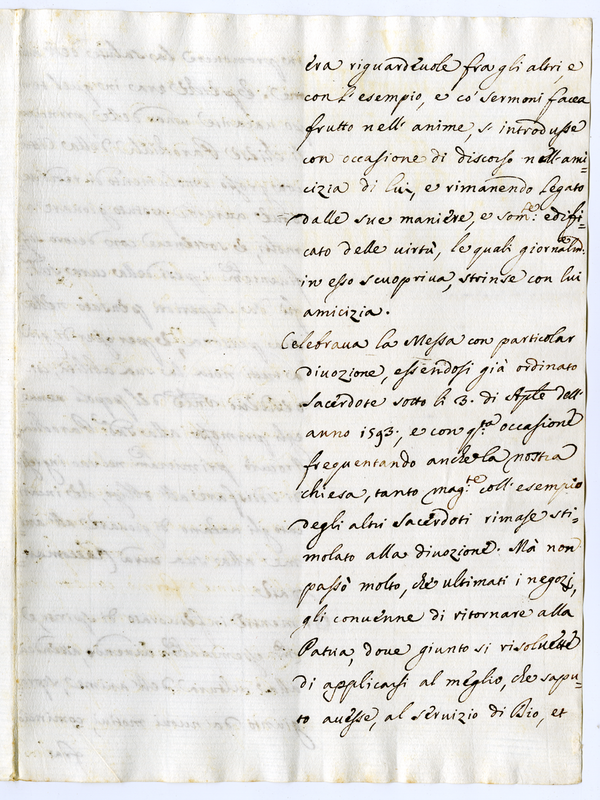 era riguardevole fra gli altri, e
con l'esempio, e co' sermoni facea
frutto nell'anime, s'introdusse
con occasione di discorso nell'ami=
cizia di lui, e rimanendo legato
dalle sue maniere, e som.e edifi=
cato delle virtù, le quali giornalm.e
in esso scuopriva, strinse con lui
amicizia.
Celebrava la Messa con particolar
divozione, essendosi già ordinato
Sacerdote sotto li 3. di Aple dell'
anno 1593., e con q.ta occasione
frequentando anche la nostra
chiesa, tanto mag.te coll'esempio
degli altri Sacerdoti rimase sti=
molato alla divozione. Mà non
passò molto, che ultimati i negozj,
gli convenne di ritornare alla
Patria, dove giunto si risolvette
di applicarsi al meglio, che sapu=
to avesse, al servizio di Dio, et